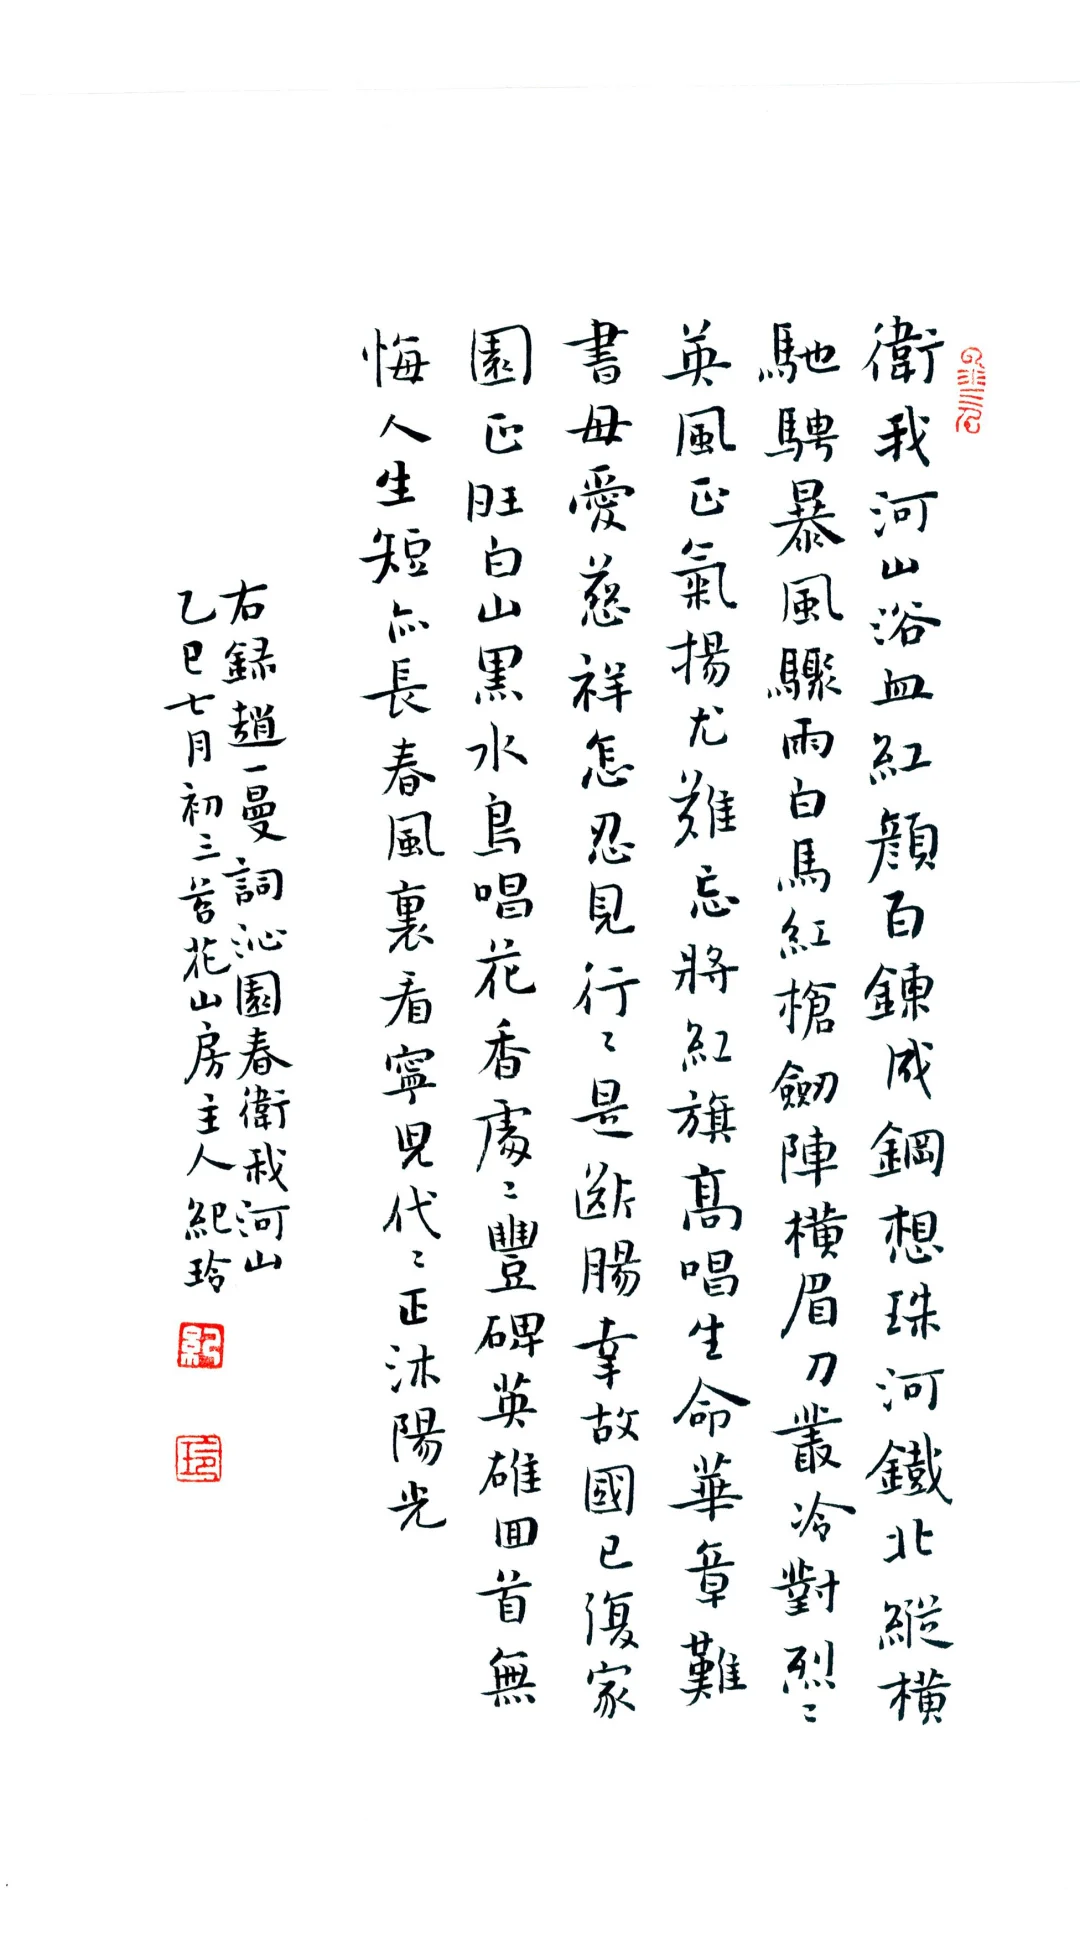 衛我河山浴血紅顏百鍊成鋼想珠河鐵北縱橫
馳騁暴風驟雨白馬紅槍劒陣橫眉刀叢冷對烈〻
英風正氣揚尤難忘將紅旗高唱生命華章難
書母愛慈祥怎忍見行〻是斷腸幸故國已復家
園正旺白山黑水鳥唱花香處〻豐碑英雄回首無
悔人生短亦長春風裏看寧兒代〻正沐陽光
右録趙一曼詞沁園春衛我河山
乙巳七月初三苔花山房主人紀玲
紀
玲